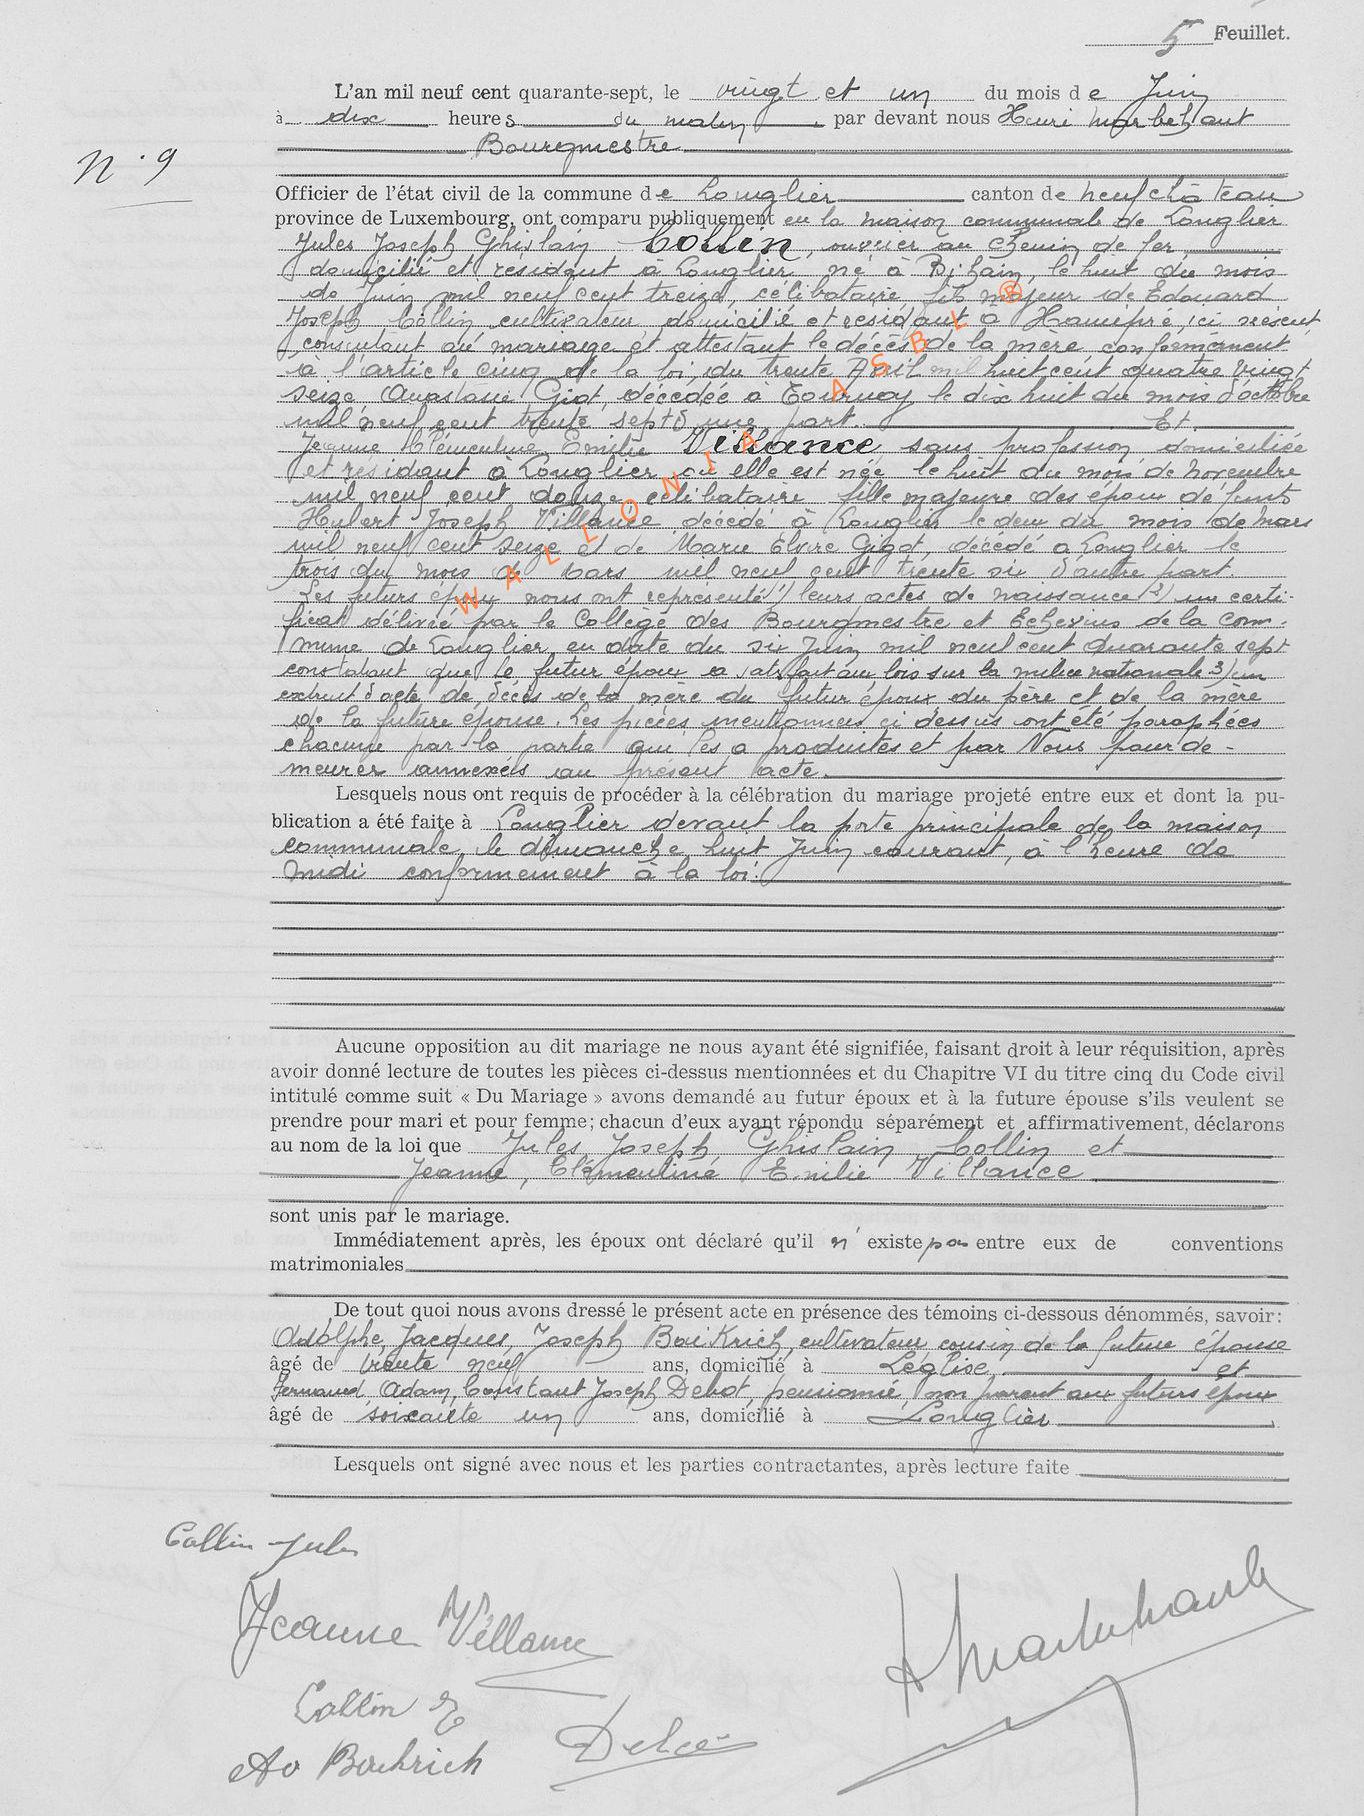 5 Feuillet.
L'an mil neuf cent quarante-sept, le vingt et un du mois de Juin
à dix heures du matin, par devant nous Henri Marbehant
Bourgmestre
N° 9
Officier de l'état civil de la commune de Longlier canton de Neufchâteau
province de Luxembourg, ont comparu publiquement en la maison communale de Longlier
Jules Joseph Ghislain Collin, ouvrier au chemin de fer,
domicilié et résidant à Longlier, né à Bihain, le huit du mois
de Juin mil neuf cent treize, célibataire, fils majeur de Edouard
Joseph Collin cultivateur, domicilié et résidant à Hamipré, ici présent
consentant au mariage et attestant le décès de la mère conformément
à l'article cinq de la loi, du trente Avril mil huit cent quatre vingt
seize, Anastasie Giot, décédée à Tournay, le dix huit du mois d'octobre
mil neuf cent trente sept d'une part. Et
Jeanne Clémentine Emilie Villance, sans profession domiciliée
et résidant à Longlier, où elle est née le huit du mois de novembre
mil neuf cent douze célibataire fille majeure des époux défunts
Hubert Joseph Villance décédé à Longlier le deux du mois de Mars
mil neuf cent seize et de Marie Elvire Gigot, décédé à Longlier le
trois du mois de Mars mil neuf cent trente six d'autre part.
Les futurs époux nous ont représenté 1) leurs actes de naissance 2) un certi-
ficat délivré par le Collège des Bourgmestre et Echevins de la com-
mune de Longlier en date du six Juin mil neuf cent quarante sept
constatant que le futur époux a satisfait aux lois sur la milice nationale 3) un
extrait d'acte de décès de la mère du futur époux, du père et de la mère
de la future épouse. Les pièces mentionnées ci dessus ont été paraphées
chacune par la partie qui les a produites et par Nous pour de-
meurer annexées au présent acte.
Lesquels nous ont requis de procéder à la célébration du mariage projeté entre eux et dont la pu-
blication a été faite à Longlier devant la porte principale de la maison
communale, le dimanche huit Juin courant, à l'heure de
midi conformément à la loi.
Aucune opposition au dit mariage ne nous ayant été signifiée, faisant droit à leur réquisition, après
avoir donné lecture de toutes les pièces ci-dessus mentionnées et du Chapitre VI du titre cinq du Code civil
intitulé comme suit « Du Mariage » avons demandé au futur époux et à la future épouse s'ils veulent se
prendre pour mari et pour femme; chacun d'eux ayant répondu séparément et affirmativement, déclarons
au nom de la loi que Jules Joseph Ghislain Collin et
Jeanne, Clémentine Emilie Villance
sont unis par le mariage.
Immédiatement après, les époux ont déclaré qu'il n'existe pas entre eux de conventions
matrimoniales
De tout quoi nous avons dressé le présent acte en présence des témoins ci-dessous dénommés, savoir:
Adolphe, Jacques, Joseph BouKrich, cultivateur, cousin de la future épouse
âgé de trente neuf ans, domicilié à Léglise, et
Fernand Adam, Constant Joseph Debot, pensionné, non parent aux futurs époux
âgé de soixante un ans, domicilié à Longlier
Lesquels ont signé avec nous et les parties contractantes, après lecture faite
Collin Jules
Jeanne Villance
H Marbehant
Collin E
Ad Bouhrich
WALLONIA ASBL ®